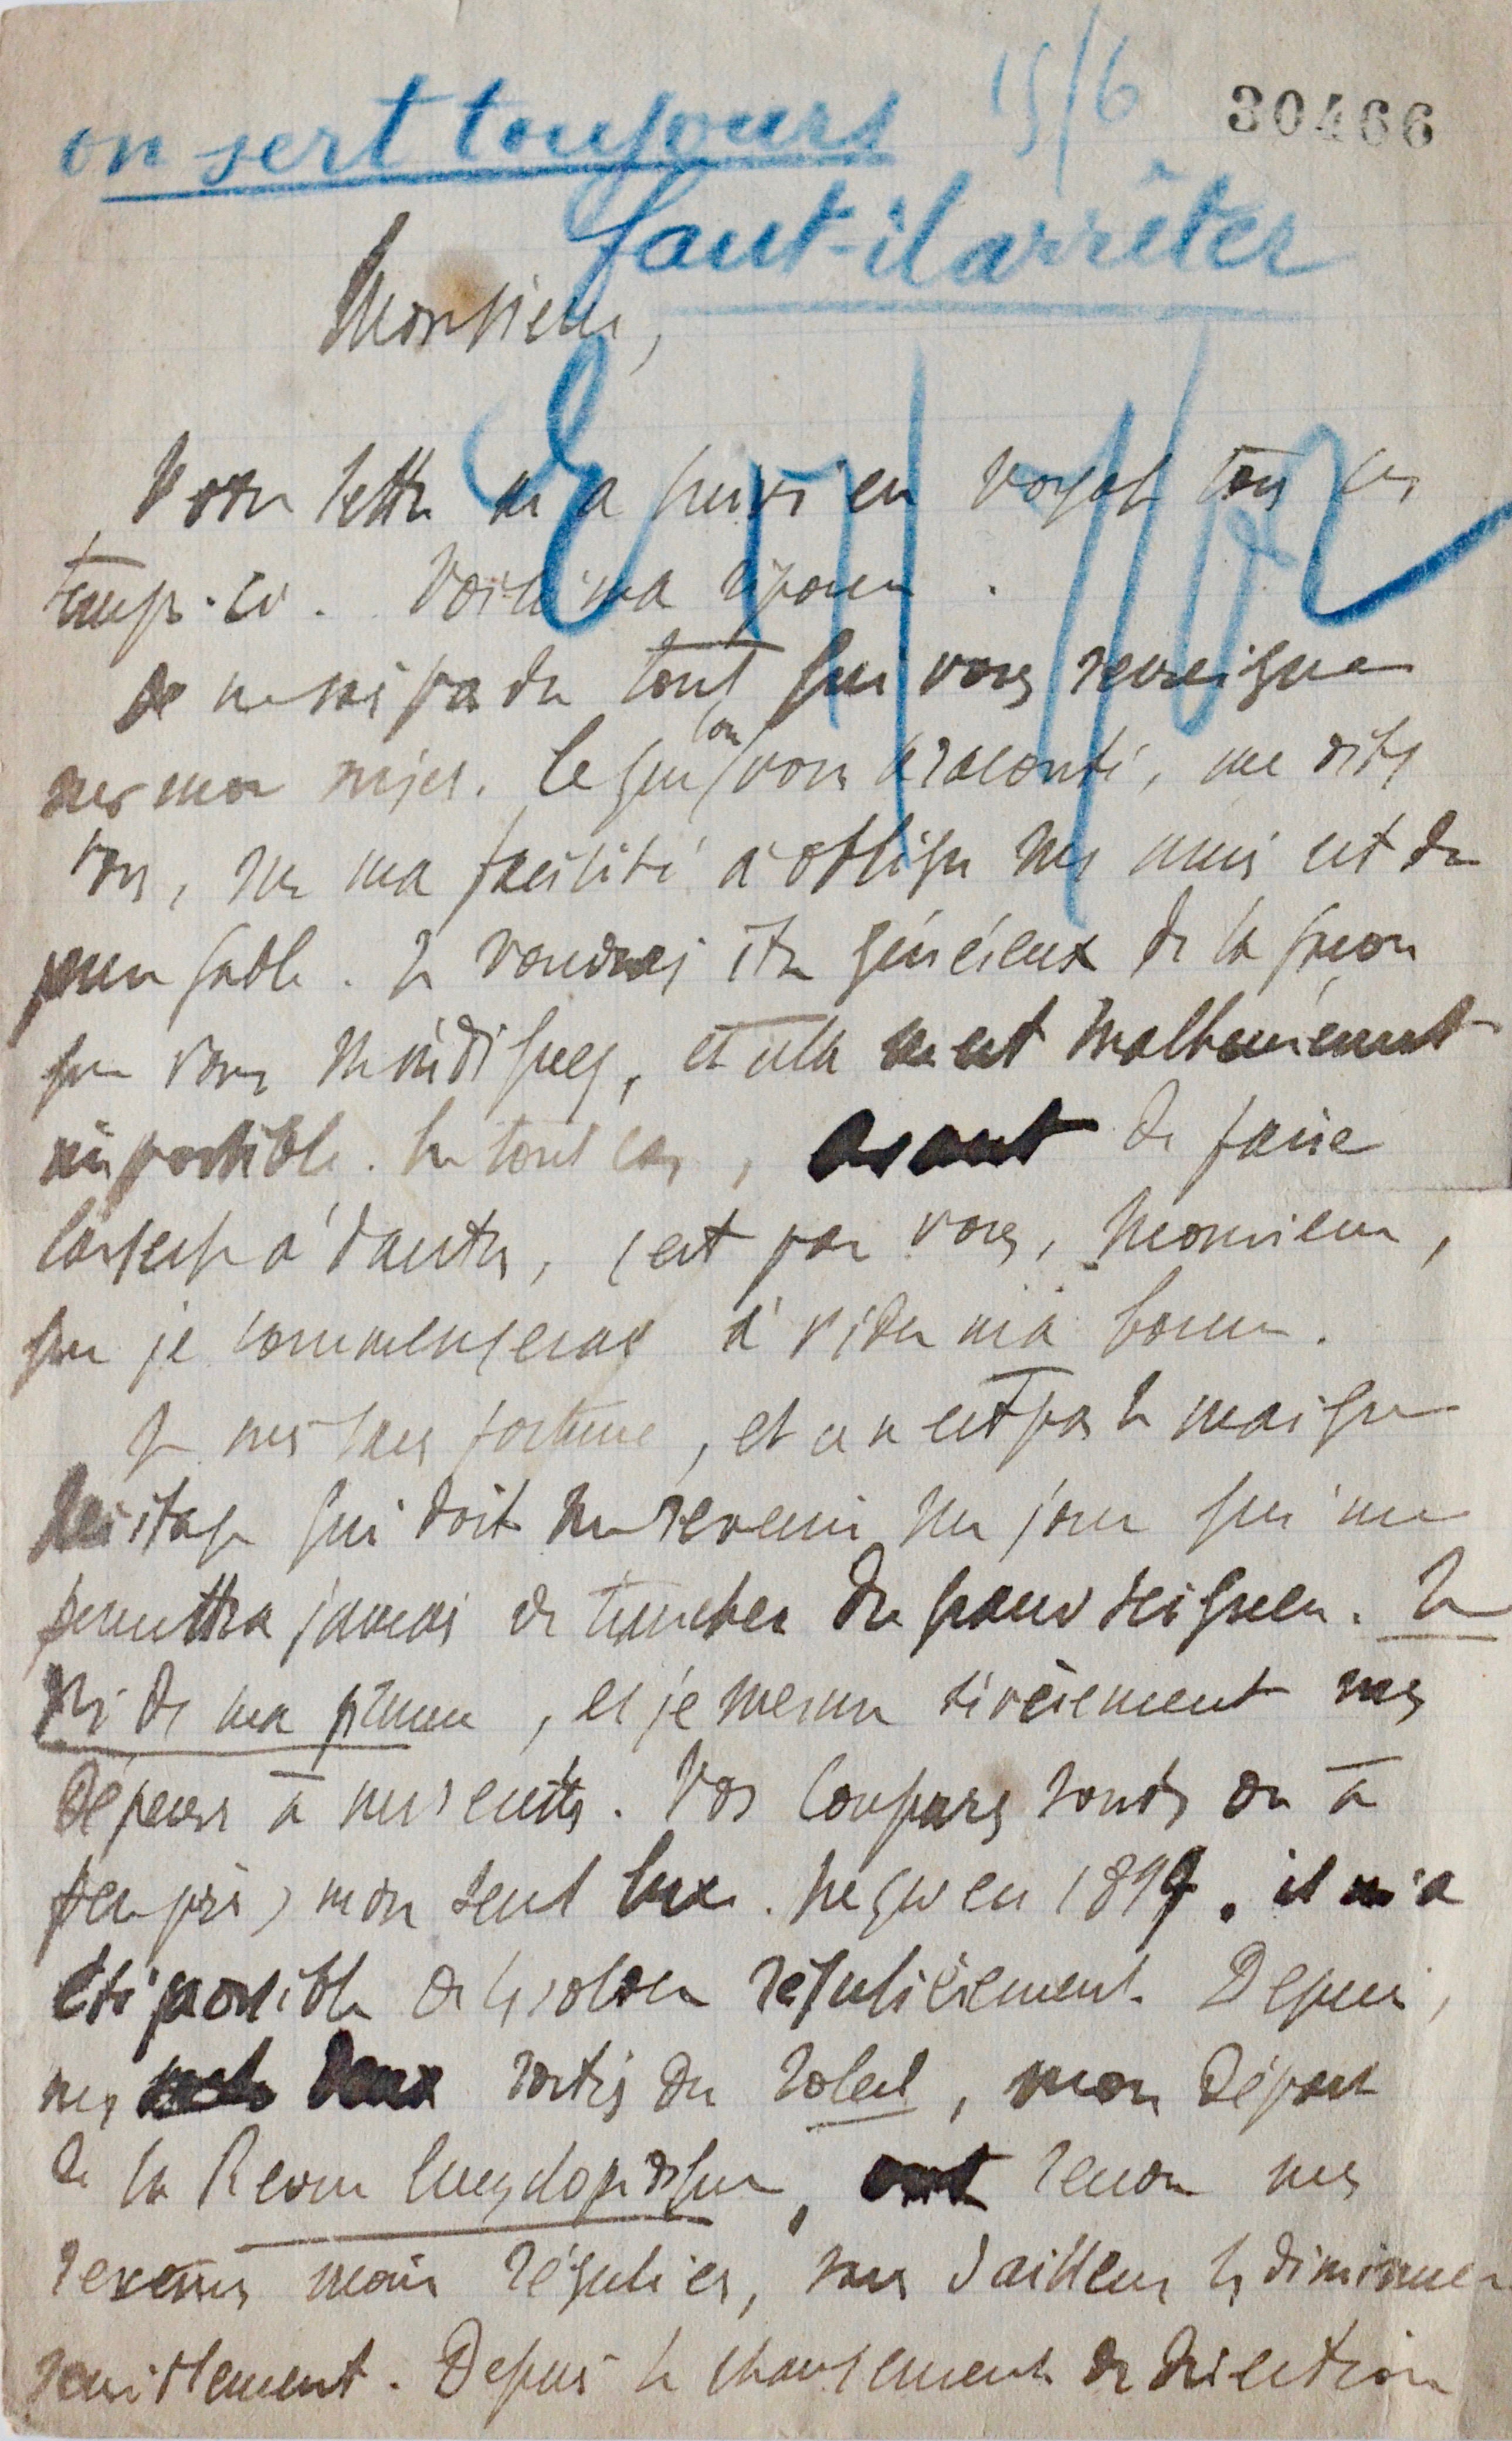 on sert toujours 15/6 30466
faut-il arrêter
Monsieur,
Votre lettre m'a suivi en voyage tous ces
temps-ci. Voici ma réponse.
Je ne sais pas du tout qui vous renseigne
sur mon sujet. Ce que l'on vous a raconté, me dites
vous, sur ma facilité à obliger mes amis est de
pure fable. Je voudrais être généreux de la façon
que vous m'indiquez, et cela m'est malheureusement
impossible. En tout cas, avant de faire
largesse à d'autres, c'est par vous, Monsieur,
que je commencerais à vider ma bourse.
Je suis sans fortune, et ce n'est pas le maigre
héritage qui doit me revenir un jour qui me
permettra jamais de trancher du grand seigneur. Je
vis de ma plume, et je mesure sévèrement mes
dépenses à mes recettes. Vos coupures sont, ou à
peu près, mon seul luxe. Jusqu'en 1899, il m'a
été possible de les solder régulièrement. Depuis,
mes deux sorties du Soleil, mon départ
de la Revue Encyclopédique, ont rendu mes
revenus moins réguliers, sans d'ailleurs les diminuer
sensiblement. Depuis le changement de direction